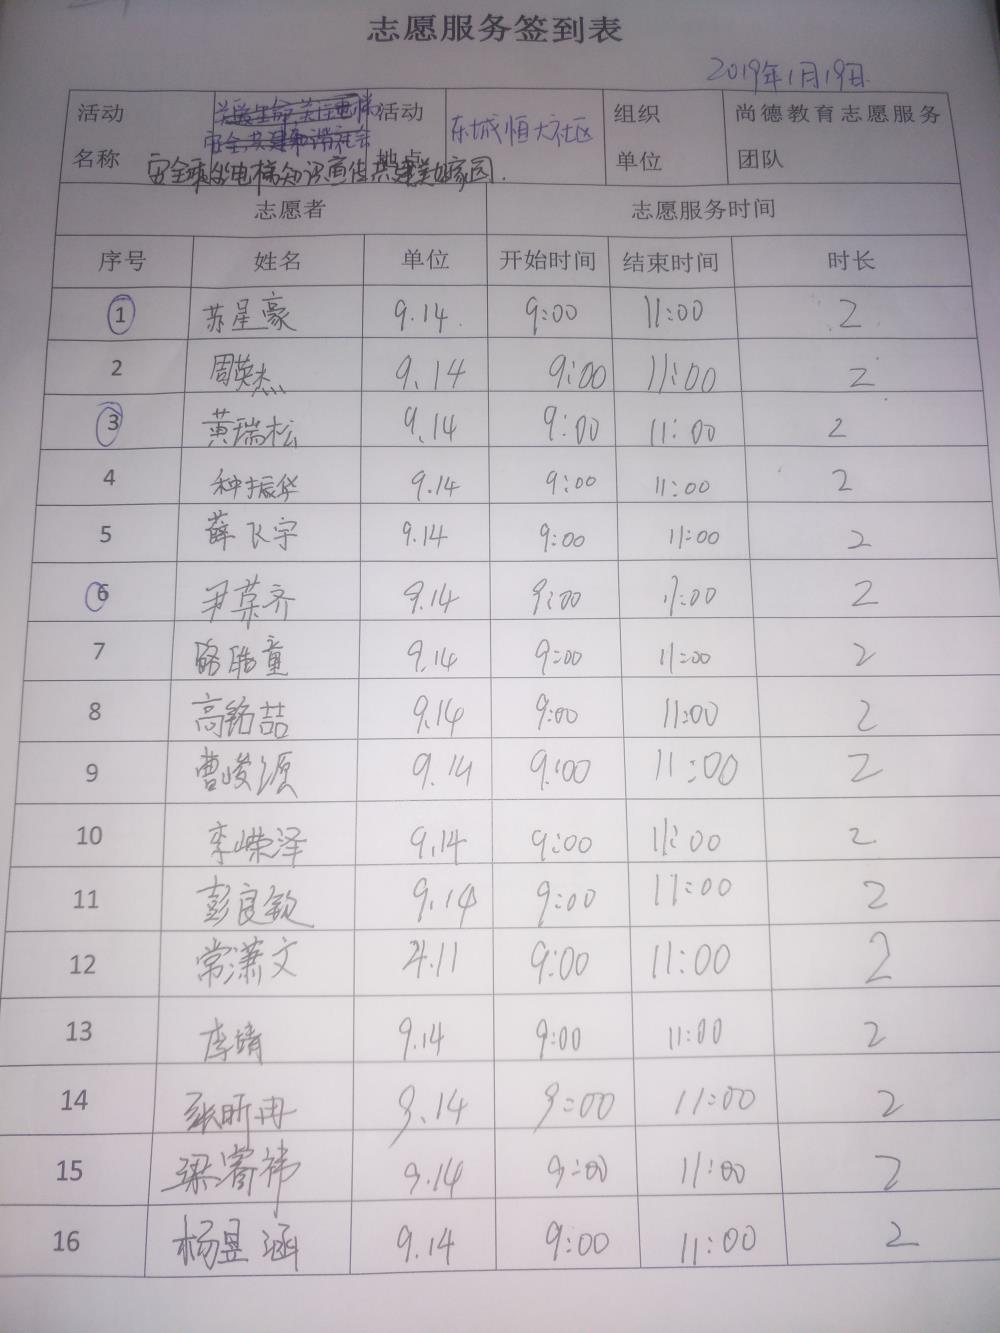 志愿服务签到表
2019年1月19日
活动名称 安全乘坐电梯知识宣传共建美好家园. 活动地点 东城恒大社区 组织单位 尚德教育志愿服务团队
志愿者 志愿服务时间
序号 姓名 单位 开始时间 结束时间 时长
1 苏星豪 9.14 9:00 11:00 2
2 周英杰 9.14 9:00 11:00 2
3 黄瑞松 9.14 9:00 11:00 2
4 种振华 9.14 9:00 11:00 2
5 薛飞宇 9.14 9:00 11:00 2
6 尹荣齐 9.14 9:00 11:00 2
7 童 9.14 9:00 11:00 2
8 高铭喆 9.14 9:00 11:00 2
9 曹峻源 9.14 9:00 11:00 2
10 李嵘泽 9.14 9:00 11:00 2
11 彭良钦 9.14 9:00 11:00 2
12 常潇文 4.11 9:00 11:00 2
13 李靖 9.14 9:00 11:00 2
14 张昕冉 9.14 9:00 11:00 2
15 梁睿祎 9.14 9:00 11:00 2
16 杨昱涵 9.14 9:00 11:00 2